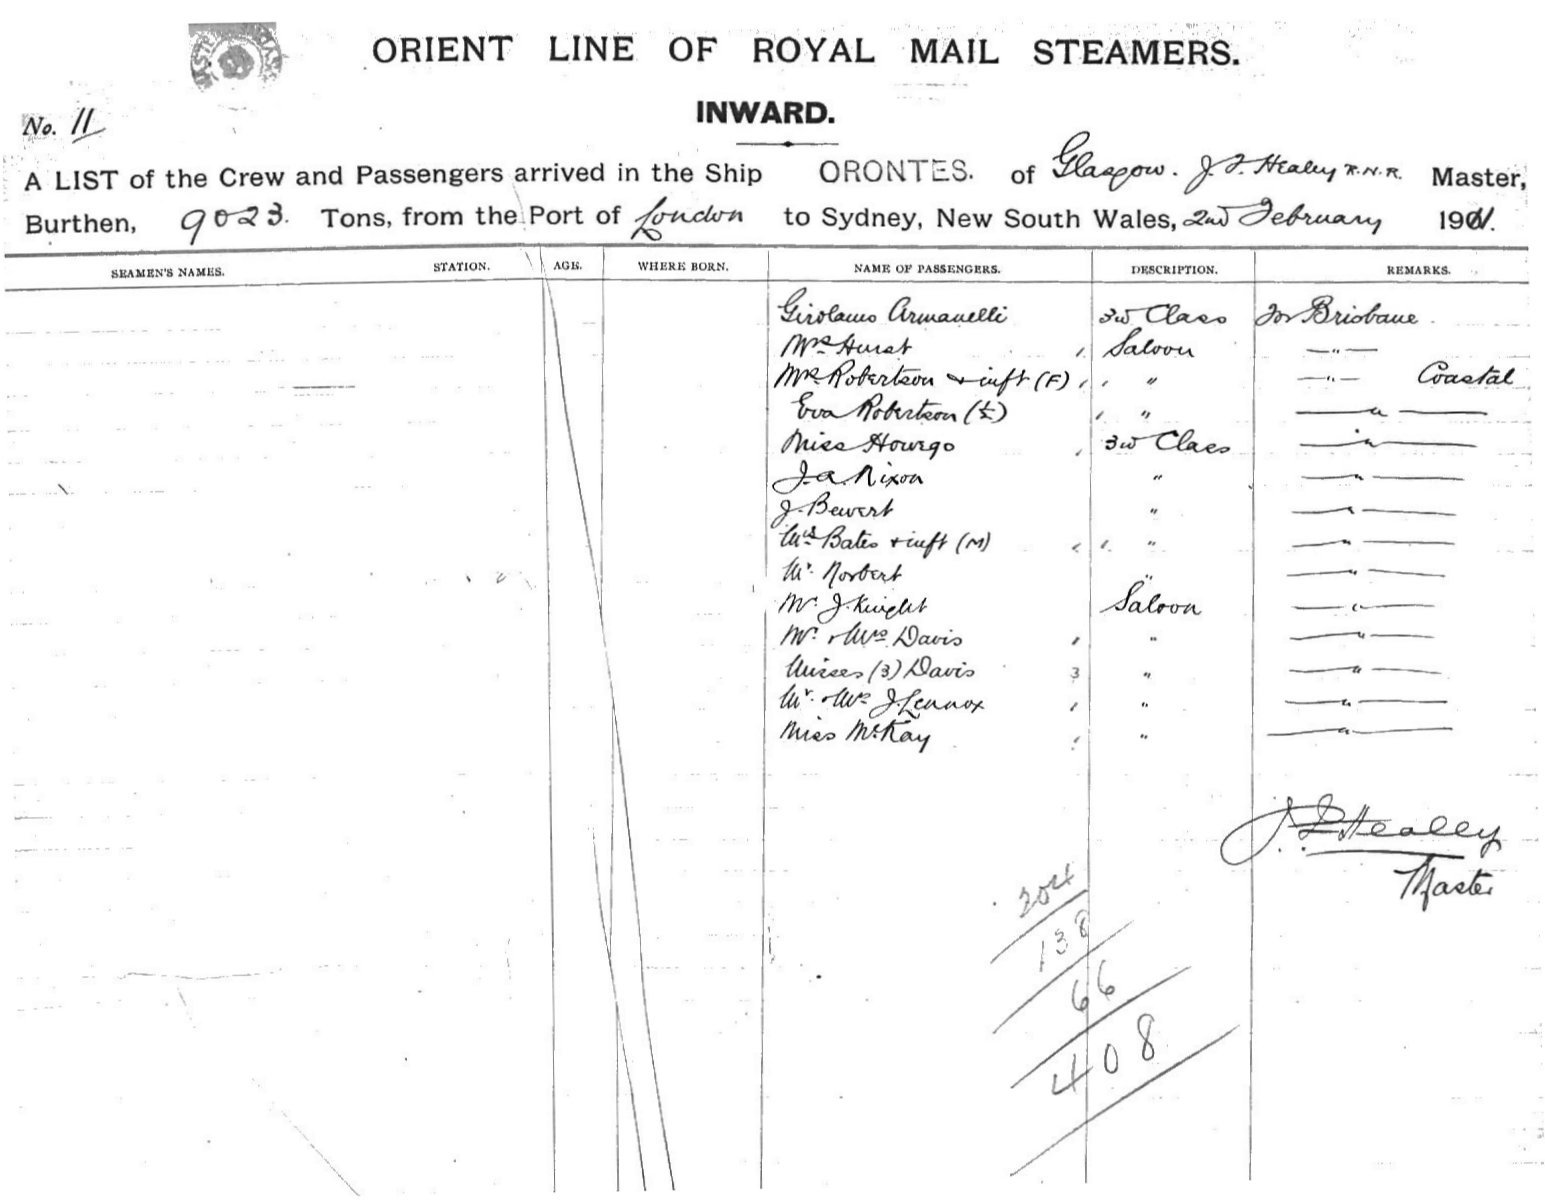 ORIENT LINE OF ROYAL MAIL STEAMERS.
INWARD.
No. 11
A LIST of the Crew and Passengers arrived in the Ship ORONTES. of Glasgow. J. F. Healey R.N.R. Master,
Burthen, 9023. Tons, from the Port of London to Sydney, New South Wales, 2nd February 1911.
SEAMEN'S NAMES. STATION. AGE. WHERE BORN. NAME OF PASSENGERS. DESCRIPTION. REMARKS.
Girolamo Armanelli 3rd Class For Brisbane
Mrs Hurst Saloon — " —
Mrs Robertson + inft (F) " — " — Coastal
Eva Robertson (½) " — " —
Miss Hourgo 3rd Class — " —
J. A. Nixon " — " —
J. Bewert " — " —
Mrs Bates + inft (M) " — " —
Mr. Norbert " — " —
Mr. J. Knight Saloon — " —
Mr. + Mrs Davis " — " —
Misses (3) Davis 3 " — " —
Mr. + Mrs J. Lennox " — " —
Miss McKay " — " —
J. F. Healey
Master
204
138
66
408